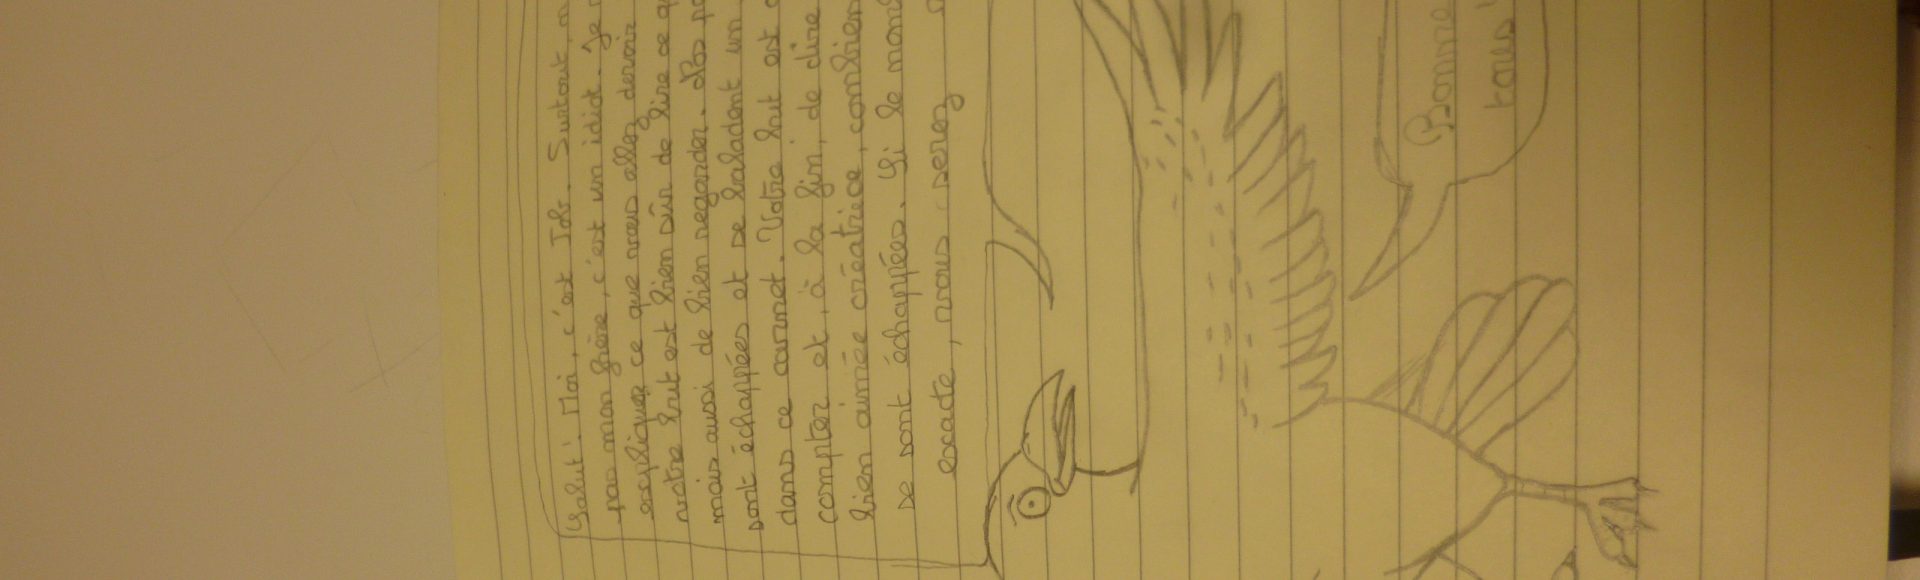 Salut ! Moi, c'est Job. Surtout, n
pas mon frère, c'est un idiot. Je
expliquer ce que vous allez devoir
votre but est bien sûr de lire ce q
mais aussi de bien regarder. Des p
sont échappées et se baladent un
dans ce carnet. Votre but est
compter et, à la fin, de dire
bien aimée créatrice, combien
se sont échappées. Si le
exacte, vous serez
Bonne
tous !